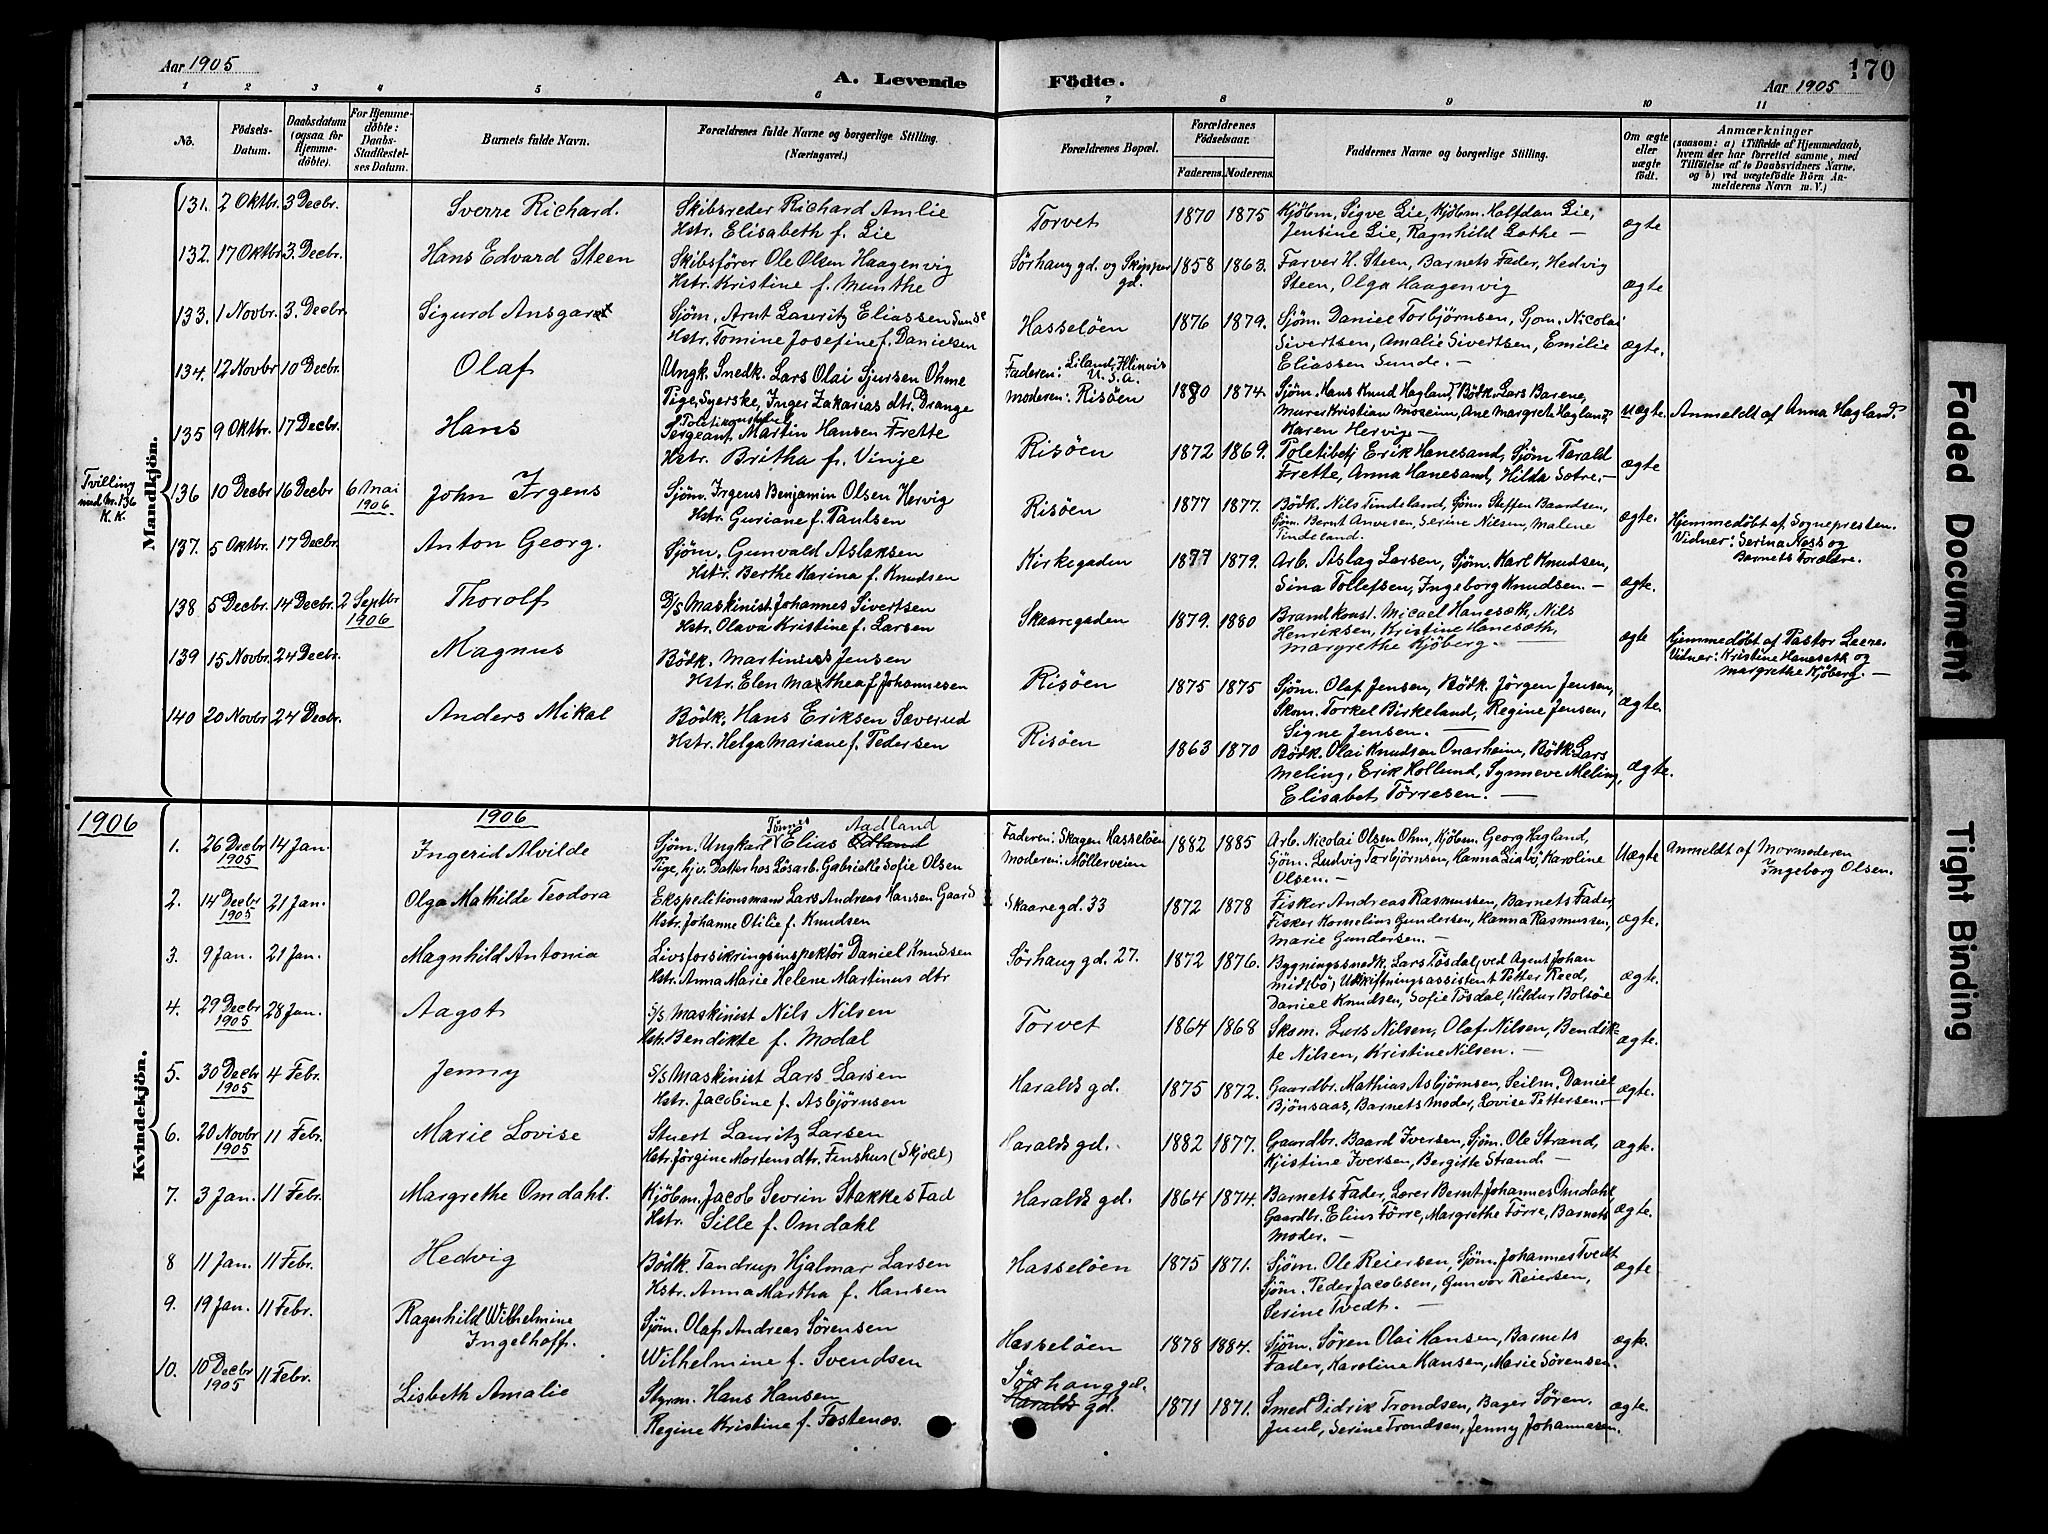 Aar 1905
A. Levende Födte.
170
Aar 1905
1 2 3 4 5 6 7 8 9 10 11
No.
Födsels-Datum.
Daabsdatum (ogsaa for Hjemme-döbte).
For Hjemme-döbte: Daabs-Stadfæstel-ses Datum.
Barnets fulde Navn.
Forældrenes fulde Navne og borgerlige Stilling. (Næringsvei.)
Forældrenes Bopæl.
Forældrenes Födselsaar.
Faderens. Moderens.
Faddernes Navne og borgerlige Stilling.
Om ægte eller uægte födt.
Anmærkninger (saasom: a) i Tilfælde af Hjemmedaab, hvem der har forrettet samme, med Tilföielse af to Daabsvidners Navne, og b) ved uægtefödte Börn An-melderens Navn m. V.)
Mandkjön.
131. 2 Oktbr. 3 Decbr. Sverre Richard. Skibsreder Richard Amlie
Hstr. Elisabeth f. Lie
Torvet 1870 1875 Kjöbm. Sigve Lie, Kjöbm. Halfdan Lie,
Jensine Lie, Ragnhild Lothe — ægte
132. 17 Oktbr 3. Decbr. Hans Edvard Steen Skibsförer Ole Olsen Haagenvig
Hstr. Kristine f. Munthe
Sørhaug gd. og Skipper gd. 1858 1863. Farver H. Steen, Barnets Fader, Hedvig
Steen, Olga Haagenvig ægte
133. 1 Novbr. 3. Decbr. Sigurd Ansgar Sjöm. Arnt Lauritz Eliassen Sunde
Hstr. Tomine Josefine f. Danielsen
Hasseløen 1876 1879. Sjöm. Daniel Torbjörnsen, Sjöm. Nicolai
Sivertsen, Amalie Sivertsen, Emilie
Eliassen Sunde. — ægte.
134. 12 Novbr 10 Decbr. Olaf Ungk. Snedk. Lars Olai Sjursen Ohme
Pige, Syerske, Inger Zakarias dtr. Drange
Faderen: Liland, Illinvis U.S.A.
Moderen: Risöen 1880 1874. Sjöm. Hans Knud Hagland, Bödk. Lars Barene,
Murer Kristian Moseim, Ane Margrete Hagland,
Karen Hervig — uægte. Anmeldt af Anna Hagland.
135 9 Oktbr. 17 Decbr. Hans Politikonstabel
Sergeant Martin Hansen Frette
Hstr. Britha f. Vinje
Risöen 1872 1869. Politibetj Erik Hanesand, Sjöm Tarald
Frette, Anna Hanesand, Hilda Sætre. — ægte
Tvilling med Nr. 136 K. K.
136 10 Decbr 16 Decbr 6 Mai 1906 John Irgens Sjöm. Irgens Benjamin Olsen Hervig
Hstr. Guriane f. Paulsen
Risöen 1877 1877. Bödk. Nils Tindeland, Sjöm. Steffen Baardsen,
Sjöm. Bernt Anvesen, Serine Nilsen, Malene
Tindeland. ægte. Hjemmedöbt af Sognepresten.
Vidner: Serina Næss og
Barnets Forældre.
137. 5 Oktbr. 17 Decbr. Anton Georg. Sjöm. Gunvald Aslaksen
Hstr. Berthe Karina f. Knudsen
Kirkegaden 1877 1879. Arb. Aslag Larsen, Sjöm. Karl Knudsen,
Sina Tollefsen, Ingeborg Knudsen. — ægte.
138 5 Decbr. 14 Decbr. 2 Septbr 1906 Thorolf D/S Maskinist Johannes Sivertsen
Hstr. Olava Kristine f. Larsen
Skaaregaden 1879. 1880 Brandkonst. Micael Hanesæth, Nils
Henriksen, Kristine Hanesæth,
Margrethe Kjöberg. — ægte Hjemmedöbt af Pastor Lære.
Vidner: Kristine Haneseth og
Margrethe Kjöberg. —
139 15 Novbr. 24 Decbr. Magnus Bödk. Martinus Jensen
Hstr. Elen Mathea f. Johannesen
Risöen 1875 1875 Sjöm. Olaf Jensen, Bödk. Jörgen Jensen,
Skom. Torkel Birkeland, Regine Jensen,
Signe Jensen. — ægte.
140 20 Novbr 24 Decbr. Anders Mikal Bödk. Hans Eriksen Sæverud
Hstr. Helga Mariane f. Pedersen
Risöen 1863 1870 Bödk. Olai Knudsen Onarheim, Bödk. Lars
Meling, Erik Hollund, Synneve Meling,
Elisabet Törresen. — Ægte.
1906
1906
Kvindekjön.
1. 26 Decbr 1905 14 Jan. Ingerid Alvilde Sjöm. Ungkarl Tönnes Elias Ødland Aadland
Pige, hjv. Datter hos Lösarb. Gabrielle Sofie Olsen
Faderen: Skagen Hasseløen
Moderen: Möllerveien 1882 1885 Arb. Nicolai Olsen Ohm, Kjöbm. Georg Hagland,
Sjöm. Ludvig Torbjörnsen, Hanna Liabö, Karoline
Olsen. — Uægte Anmeldt af Mormoderen
Ingeborg Olsen.
2. 14 Decbr 1905 21 Jan. Olga Mathilde Teodora Ekspeditionsmand Lars Andreas Hansen Gaard
Hstr. Johanne Otilie f. Knudsen
Skaaregd. 33 1872 1878 Fisker Andreas Rasmussen, Barnets Fader,
Fisker Kornelius Gundersen, Hanna Rasmussen,
Marie Gundersen. — ægte.
3. 9 Jan. 21 Jan. Magnhild Antonia Livsforsikringsinspektör Daniel Knudsen
Hstr. Anna Marie Helene Martinus dtr
Sörhaug gd. 27. 1872 1876. Bygningssnedk. Lars Tösdal, ved Agent Johan
Midtbö, Udskiftningsassistent Petter Reed,
Daniel Knudsen, Sofie Tösdal, Hildur Bolsöe ægte.
4. 29 Decbr 1905 28 Jan. Aagot S/S Maskinist Nils Nilsen
Hstr. Bendikte f. Modal
Torvet 1864 1868 Skom. Lars Nilsen, Olaf Nilsen, Bendik-
te Nilsen, Kristine Nilsen. — ægte.
5. 30 Decbr 1905 4 Febr. Jenny S/S Maskinist Lars Larsen
Hstr. Jacobine f. Asbjörnsen
Haralds gd. 1875 1872. Gaardbr. Mathias Asbjörnsen, Seilm. Daniel
Bjönsaas, Barnets Moder, Lovise Pettersen. — ægte.
6. 20 Novbr 1905 11 Febr. Marie Lovise Stuert Lauritz Larsen
Hstr. Jörgine Mortensdtr. Finshus (Skjold)
Haralds gd. 1882 1877. Gaardbr. Baard Iversen, Sjöm. Ole Strand,
Kjistine Iversen, Bergitte Strand. — ægte.
7. 3 Jan. 11 Febr. Margrethe Omdahl. Kjöbm. Jacob Sevrin Stakkestad
Hstr. Sille f. Omdahl
Haralds gd. 1864 1874. Barnets Fader, Lærer Bernt Johannes Omdahl,
Gaardbr. Elius Förre, Margrethe Förre, Barnets
Moder. — ægte.
8 11 Jan. 11 Febr. Hedvig Bödk. Tandrup Hjalmar Larsen
Hstr. Anna Martha f. Hansen
Hasseløen 1875 1871. Sjöm. Ole Reiersen, Sjöm. Johannes Tvedt
Sjöm. Peder Jacobsen, Gunvor Reiersen,
Serine Tvedt. — ægte
9. 19 Jan. 11 Febr. Ragnhild Wilhelmine
Ingelhoff. Sjöm. Olaf Andreas Sörensen
Wilhelmine f. Svendsen
Hasseløen 1878 1884. Sjöm. Sören Olai Hansen, Barnets
Fader, Karoline Hansen, Marie Sörensen. ægte.
10. 10 Decbr 1905 11 Febr. Lisbeth Amalie Styrm. Hans Hansen
Regine Kristine f. Fostenes.
Sörhaug gd.
Haralds gd. 1871 1871. Smed Didrik Trondsen, Bager Sören
Juul, Serine Trondsen, Jenny Johannesen. ægte.
Faded Document
Tight Binding